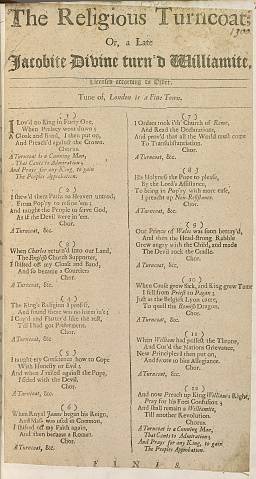 The Religious Turncoat:
Or, a Late
Jacobite Divine turn'd Williamite.
Licensed according to Order.
Tune of, London is a Fine Town.
( 1 )
I Lov'd no King in Forty One,
When Prelacy went down;
A Cloak and Band, I then put on,
And Preach'd against the Crown.
Chorus.
A Turncoat is a Cunning Man,
That Cants to Admiration;
And Prays for any King, to gain
The Peoples Approbation.
( 2 )
I shew'd them Paths to Heaven untrod,
From Pop'ry to refine 'em;
And taught the People to serve God,
As if the Devil were in 'em.
Chor.
A Turncoat, &c.
( 3 )
When Charles return'd into our Land,
The English Church Supporter,
I shifted off my Cloak and Band,
And so became a Courtier.
Chor.
A Turncoat, &c.
( 4 )
The King's Religion I profest,
And found there was no harm in't;
I Cog'd and Flatter'd like the rest,
Till I had got Preferment.
Chor.
A Turncoat, &c.
( 5 )
I taught my Conscience how to Cope
With Honesty or Evil;
And when I rail'd against the Pope,
I sided with the Devil.
Chor.
A Turncoat, &c.
( 6 )
When Royal James began his Reign,
And Mass was us'd in Common,
I shifted off my Faith again,
And then became a Roman.
Chor.
A Turncoat, &c.
( 7 )
I Orders took i'th' Church of Rome,
And Read the
And prov'd that all the World must come
To Transubstantiation.
Chor.
A Turncoat, &c.
( 8 )
His Holyness the Pope to please,
By the Lord's Assistance,
To bring in Pop'ry with more ease,
I preach'd up Non-Resistance.
Chor.
A Turncoat, &c.
( 9 )
Our Prince of Wales was soon
And then the Head-strong Rabble
Grew angry with the Child, and made
The Devil rock the Cradle.
Chor.
A Turncoat, &c.
( 10 )
When Cause grew sick, and King grew Tame
I fell from Priest to Pagan;
Just as the Belgick Lyon came,
To quail the Dragon.
Chor.
A Turncoat, &c.
( 11 )
When William had possest the Throne,
And Cur'd the Nations Grievance,
New Principles I then put on,
And swore to him Allegiance.
Chor.
A Turncoat, &c.
( 12 )
And now Preach up King William's Right,
Pray for his Foes Confusion;
And shall remain a Williamite,
Till another Revolution.
Chorus.
A Turncoat is a Cunning Man,
That Cants to Admiration;
And Prays for any King, to gain
The Peoples Approbation.
F I N I S.